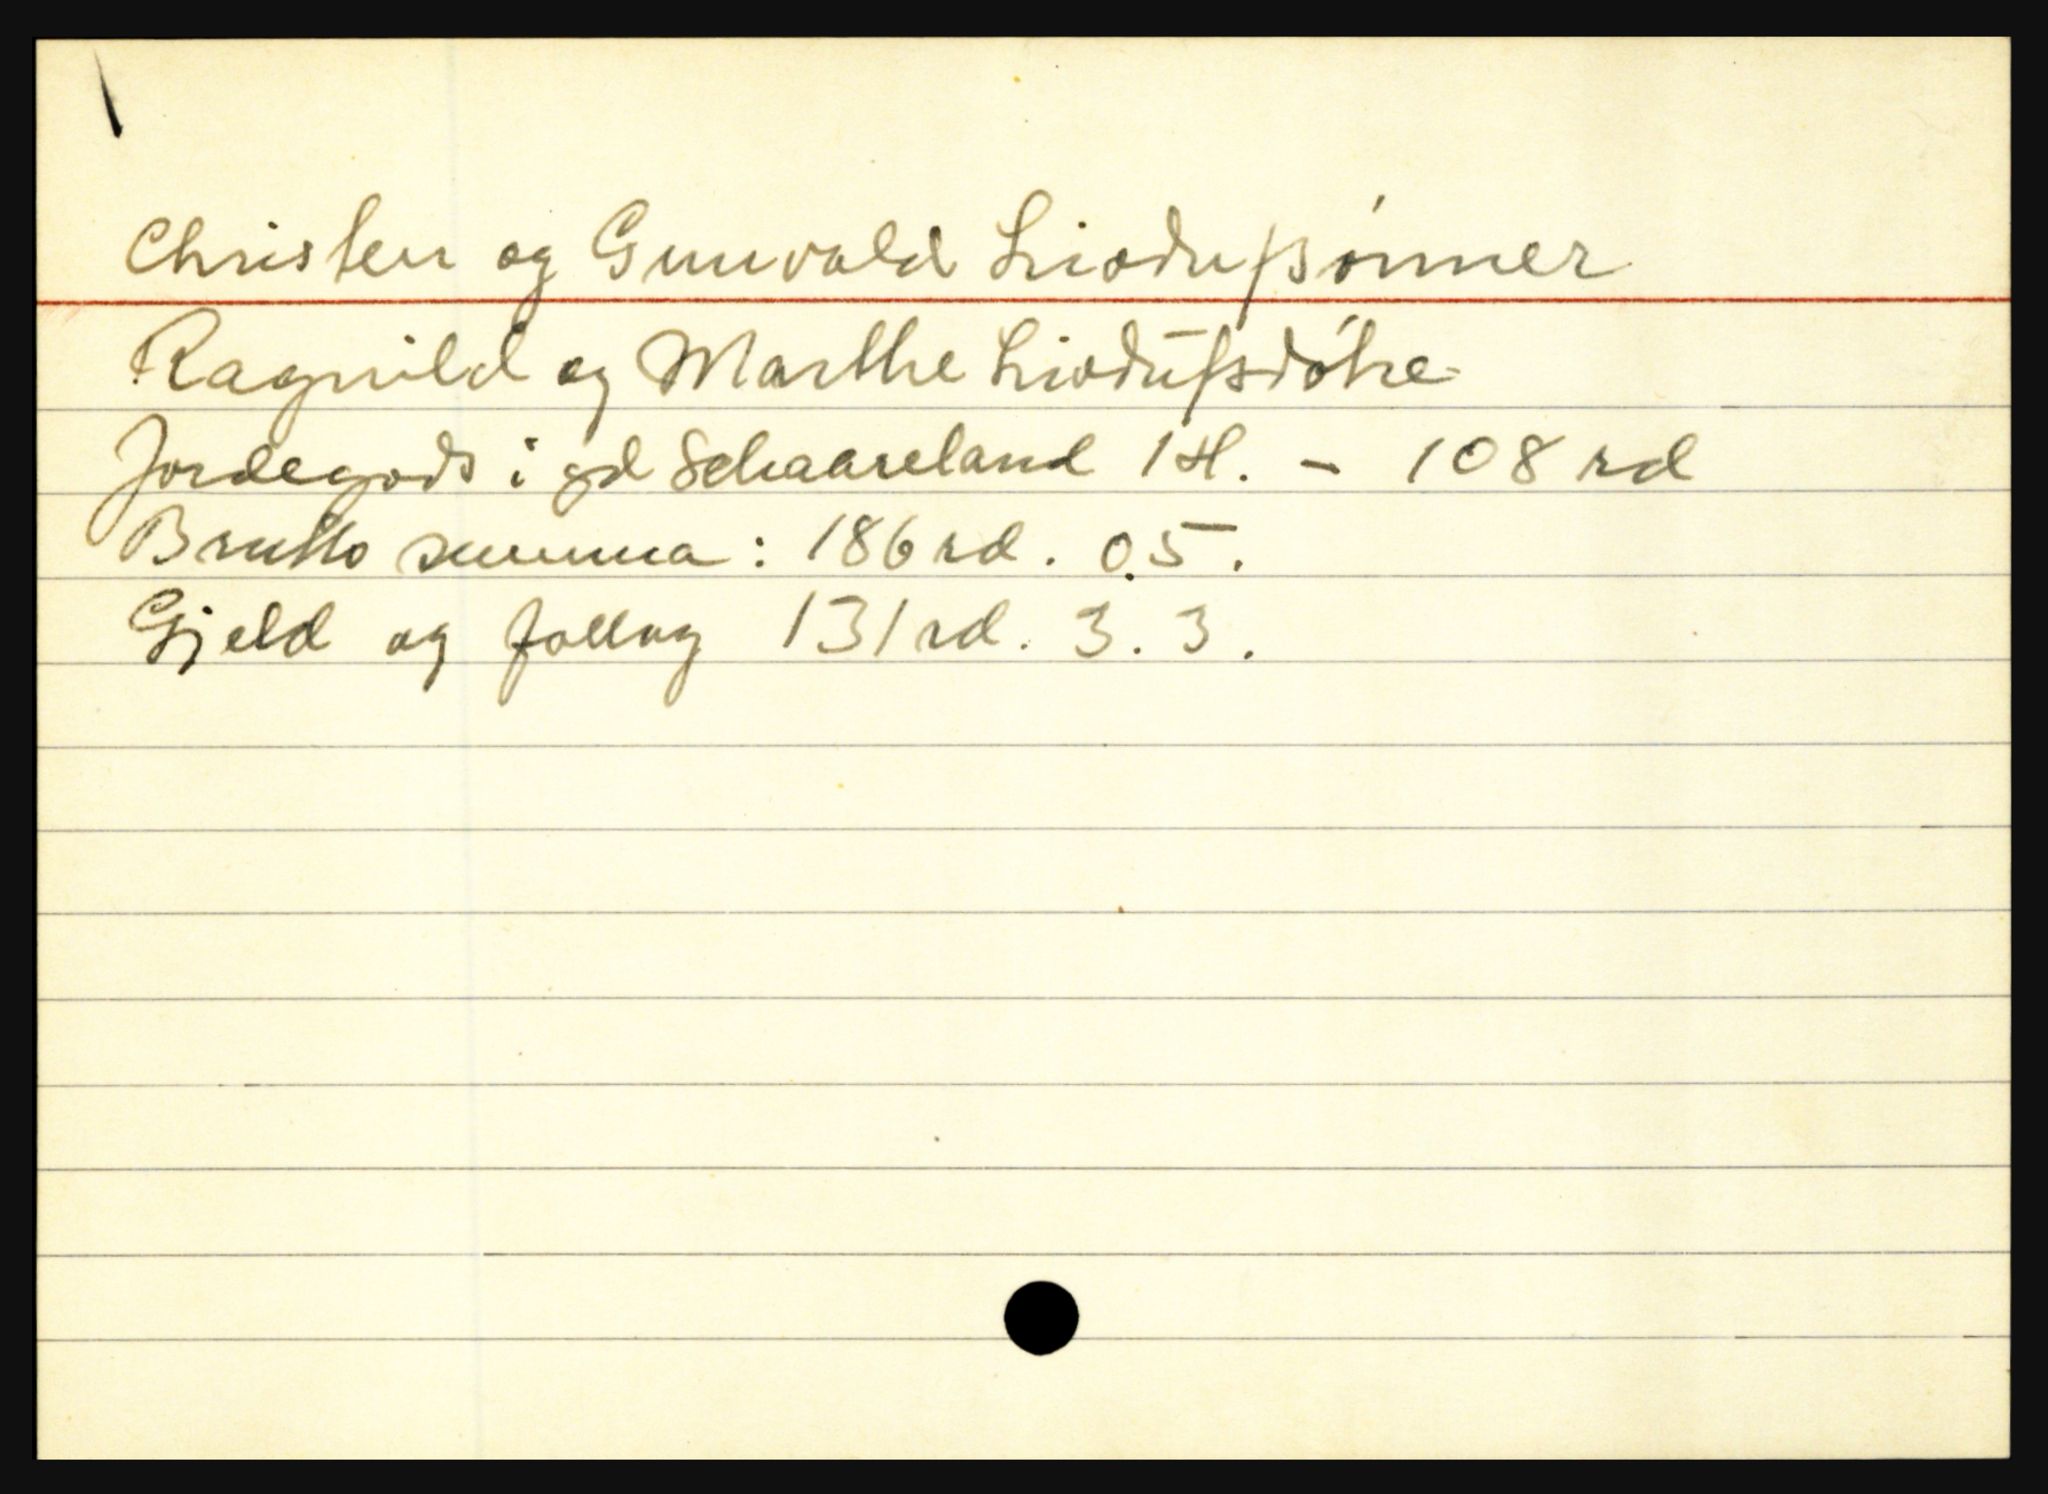 Christen og Gunvald Liodufssønner
Ragnild og Marthe Liodufsdøtre
Jordegods i gd Schaareland 1 H. - 108 rd
Brutto summa: 186 rd. 0.5.
Gjeld og follug 131 rd. 3. 3.